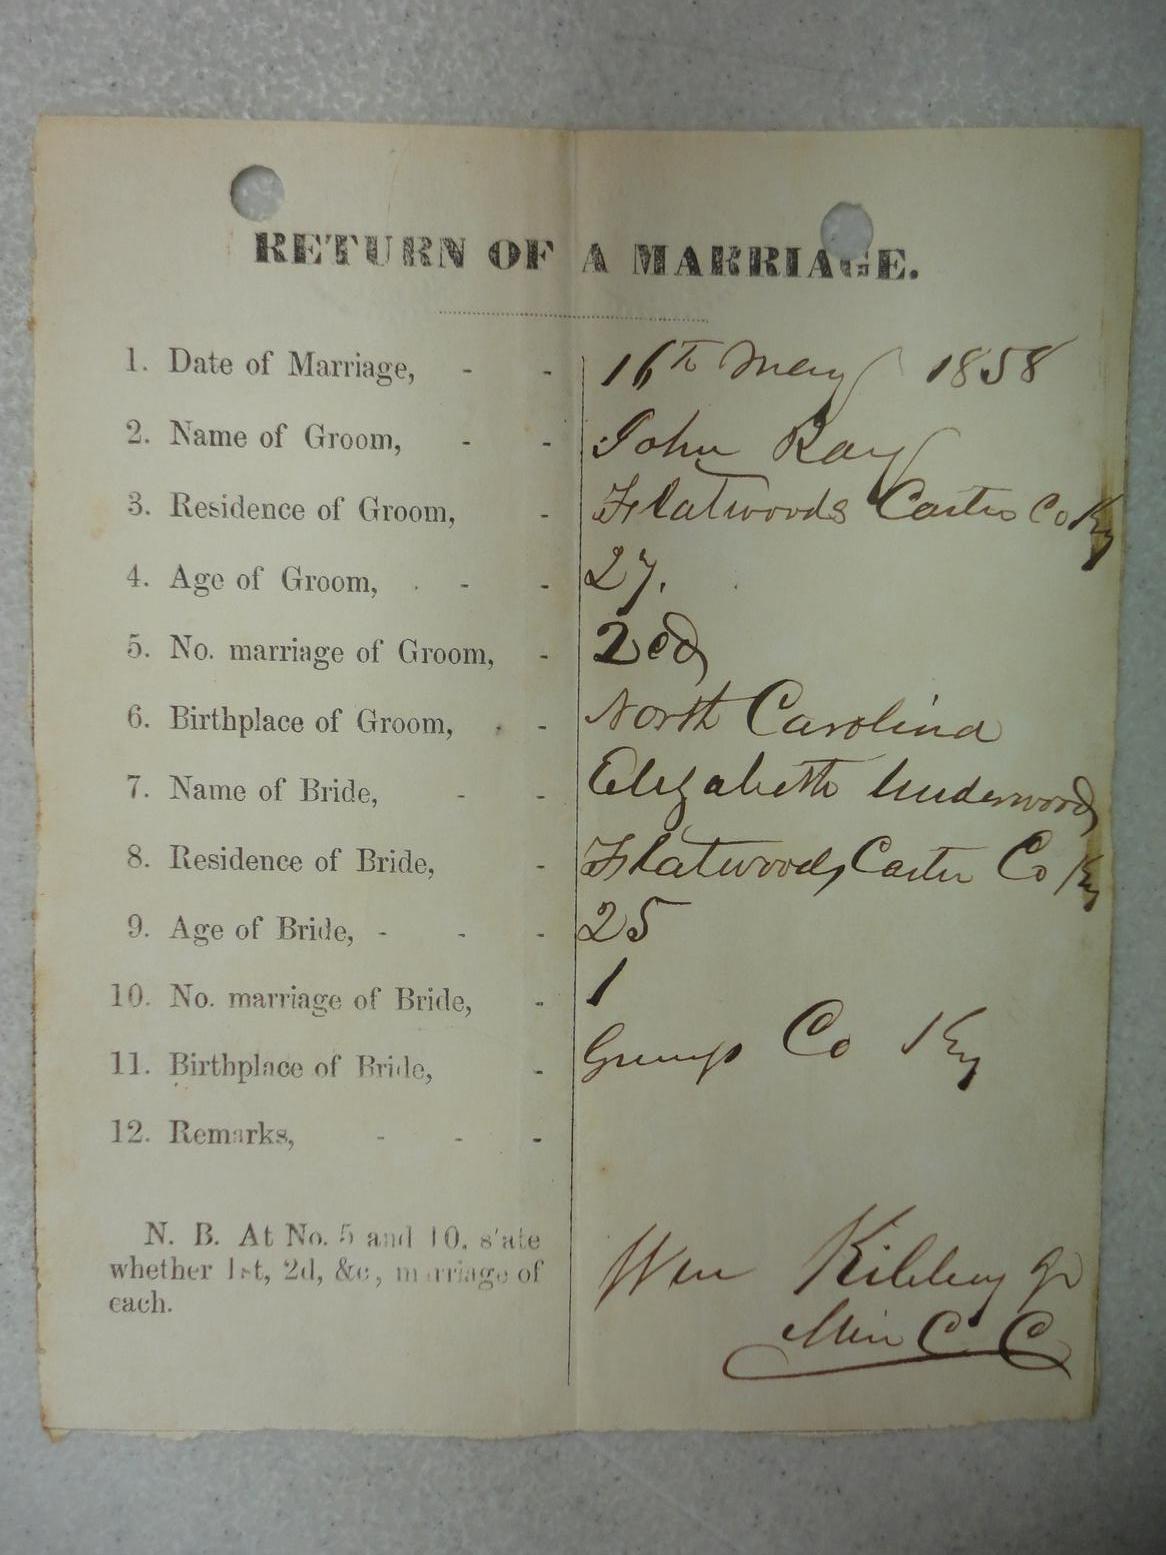 RETURN OF A MARRIAGE.
1. Date of Marriage, - - 16th May 1858
2. Name of Groom, - - John Ray
3. Residence of Groom, - Flatwoods Carter Co Ky
4. Age of Groom, - - 27.
5. No. marriage of Groom, - 2ed
6. Birthplace of Groom, - North Carolina
7. Name of Bride, - - Elizabeth Underwood
8. Residence of Bride, - Flatwoods Carter Co Ky
9. Age of Bride, - - - 25
10. No. marriage of Bride, - 1
11. Birthplace of Bride, - Co Ky
12. Remarks, - - -
N. B. At No. 5 and 10, state
whether 1st, 2d, &c., marriage of
each.
Wm Kibbey Jr
Min C C